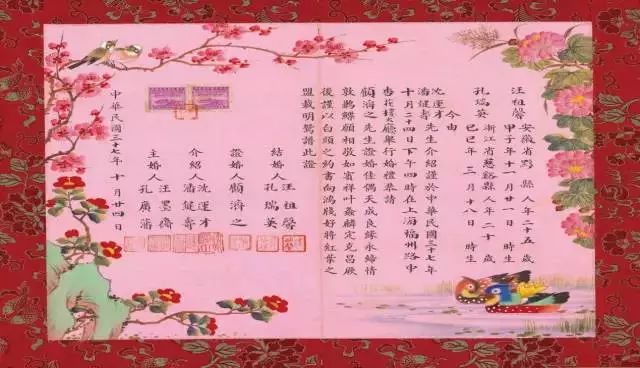 汪祖馨
安徽省黟縣人年二十五歲
甲子年十一月廿一日 時生
孔瑞英
浙江省慈谿縣人年二十歲
己巳年三月十八日 時生
今由
沈運才
潘健壽
先生介紹謹於中華民國三十七年
十月二十四日下午四時在上海福州路中
杏花樓大廳舉行婚禮恭請
顧濟之先生證婚佳偶天成良緣永締情
敦鶼鰈願相敬如賓祥叶螽麟定克昌厥
後謹以白頭之約書向鴻牋好將紅葉之
盟載明鴛譜此證
結婚人
汪祖馨
孔瑞英
證婚人 顧濟之
介紹人
沈運才
潘健壽
主婚人
汪墨
孔廣藩
中華民國三十七年十月廿四日